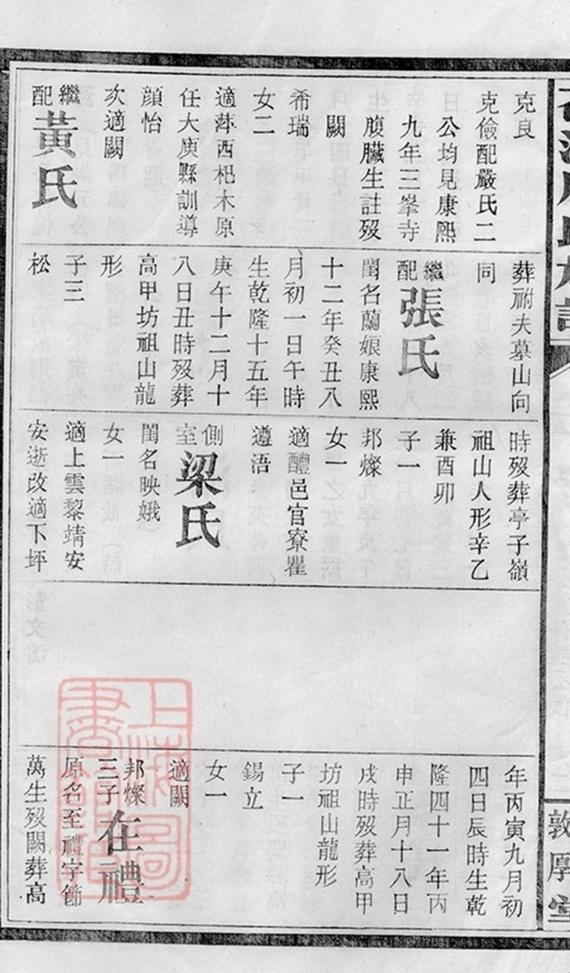 克良
克儉配嚴氏二
公均見康熙
九年三峯寺
腹臟生註歿
闕
希瑞
女二
適蓱西杞木原
任大庾縣訓導
顏怡
次適闕
繼配黃氏
葬祔夫墓山向
同
繼配張氏
閨名蘭娘康熙
十二年癸丑八
月初一日午時
生乾隆十五年
庚午十二月十
八日丑時歿葬
高甲坊祖山龍
形
子三
松
時歿葬亭子嶺
祖山人形辛乙
兼酉卯
子一
邦燦
女一
適醴邑官寮瞿
遵浯
側室梁氏
閨名映娥
女一
適上雲黎靖安
安逝改適下坪
年丙寅九月初
四日辰時生乾
隆四十一年丙
申正月十八日
戌時歿葬高甲
坊祖山龍形
子一
錫立
女一
適闕
邦燦三子在禮
原名至禮字節
萬生歿闕葬高
敦厚堂
上海圖書館藏